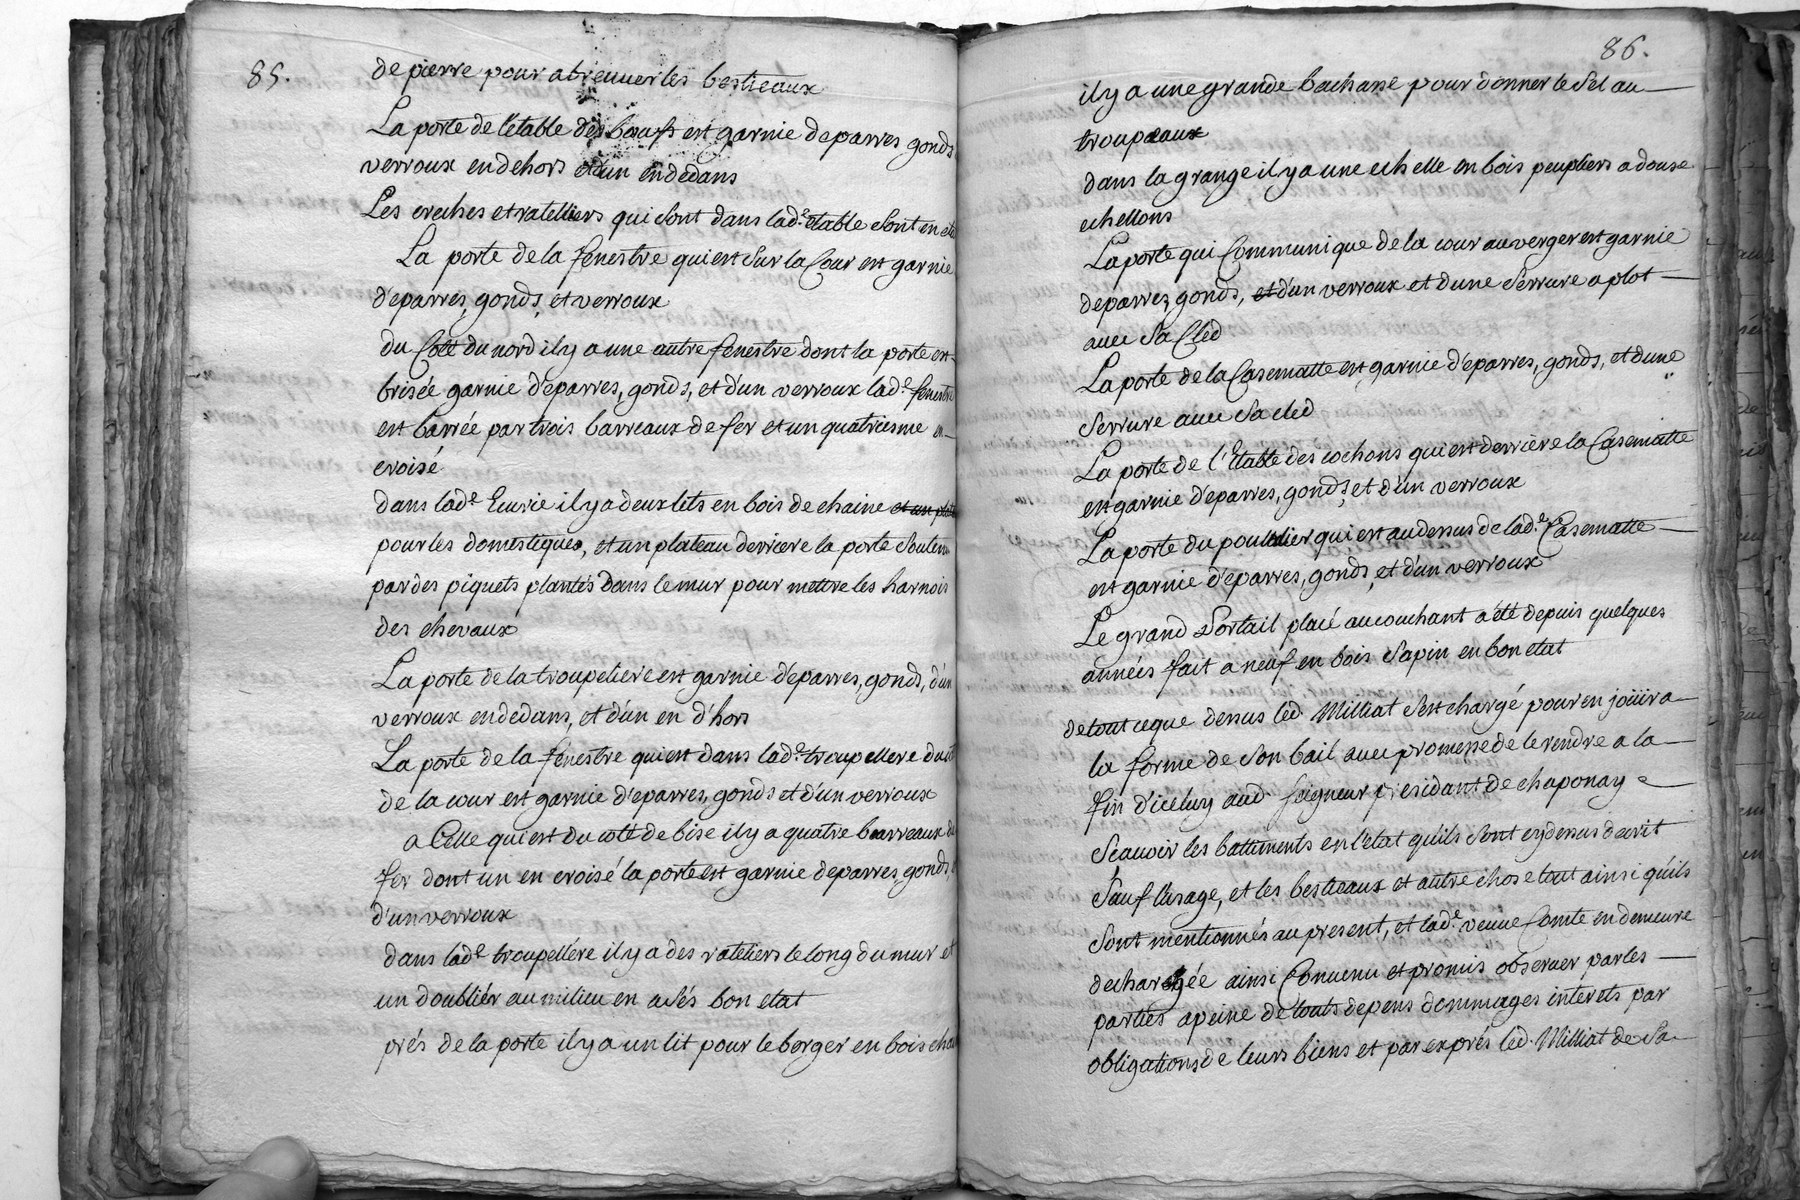 85.
de pierre pour abreuver les bestieaux
La porte de l'etable des boeufs est garnie deparres gonds
verroux en dehors et d'un en dedans
Les creches et rateliers qui sont dans lad.e etable sont en
La porte de la fenestre qui est sur la Cour est garnie
d'eparres, gonds, et verroux
du Coté du nord il y a une autre fenestre dont la porte est
brisée garnie d'eparres, gonds, et d'un verroux lad.e fenestre
est barrée par trois barreaux de fer et un quatriesme en
croisé
dans lad.e Ecurie il y a deux lits en bois de chaine et un plat
pour les domestiques, et un plateau derriere la porte soutenu
par des piquets plantés dans le mur pour mettre les harnois
des chevaux
La porte de la troupeliere est garnie d'eparres, gonds, d'un
verroux en dedans, et d'un en d'hors
La porte de la fenestre qui est dans lad.e troupellere du
de la cour est garnie d'eparres, gonds et d'un verroux
a Celle qui est du coté de bise il y a quatre barreaux de
fer dont un en croisé la porte est garnie deparres, gonds,
d'un verroux
dans lad.e troupellére il y a des rateliers le long du mur et
un doubliér au milieu en asés bon etat
prés de la porte il y a un lit pour le berger en bois
86.
il y a une grande bachasse pour donner le sel au
troupeaux
dans la grange il y a une echelle en bois peupliers a douse
echellons
La porte qui Communique de la cour au verger est garnie
deparres, gonds, et d'un verroux et d'une serrure a plot
avec sa Cled
La porte de la Casematte est garnie d'eparres, gonds, et d'une
serrure avec sa cled
La porte de l'Etable des cochons qui est derriére la Casematte
est garnie d'eparres, gonds, et d'un verroux
La porte du poulailier qui est au dessus de lad.e Casematte
est garnie d'eparres, gonds, et d'un verroux
Le grand Portail placé au couchant a été depuis quelques
années fait a neuf en bois sapin en bon etat
de tout ce que dessus led. Milliat s'est chargé pour en joüir a
la forme de son bail avec promesse de le rendre a la
fin d'iceluy aud. seigneur presidant de chaponay
Scavoir les battiments en l'etat qu'ils sont cy dessus decrit
sauf l'usage, et les bestieaux et autre chose tout ainsi qu'ils
sont mentionnés au present, et lad.e veuve Comte en demeure
dechargée ainsi Convenu et promis observer par les
parties a peine de touts depens dommages interets par
obligations de leurs biens et par exprés led. Milliat de sa